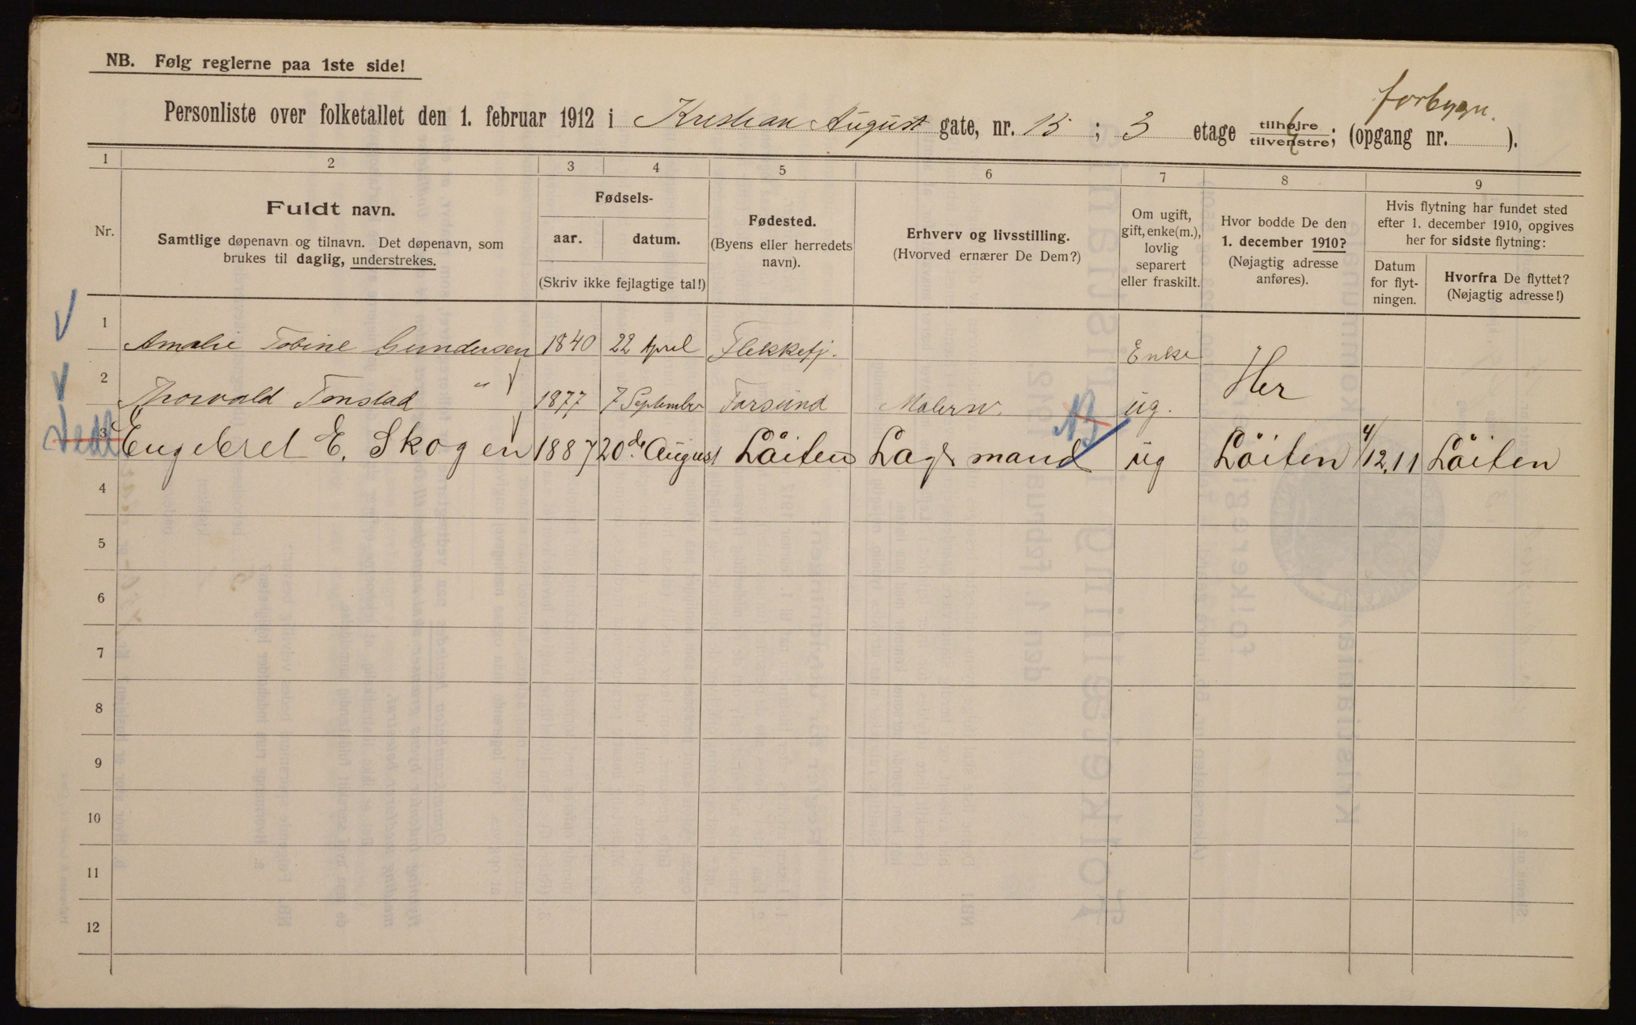 NB. Følg reglerne paa 1ste side!
forbygn.
Personliste over folketallet den 1. februar 1912 i Kristian August gate, nr. 15 ; 3 etage tilhøjre tilvenstre; (opgang nr. ).
1 2 3 4 5 6 7 8 9
Nr.
Fuldt navn.
Samtlige døpenavn og tilnavn. Det døpenavn, som
brukes til daglig, understrekes.
Fødsels-
aar. datum.
(Skriv ikke fejlagtige tal!)
Fødested.
(Byens eller herredets
navn).
Erhverv og livsstilling.
(Hvorved ernærer De Dem?)
Om ugift,
gift, enke(m.),
lovlig
separert
eller fraskilt.
Hvor bodde De den
1. december 1910?
(Nøjagtig adresse
anføres).
Hvis flytning har fundet sted
efter 1. december 1910, opgives
her for sidste flytning:
Datum
for flyt-
ningen.
Hvorfra De flyttet?
(Nøjagtig adresse!)
1 Amalie Tobine Gundersen 1840 22 April Flekkefj. Enke
Her
2 Thorvald Tonstad " 1877 7 September Farsund Malersv. ug.
NB
3 Engebret E. Skogen 1887 20de August Löiten Lagermand ug Löiten 4/12.11 Löiten
4
5
6
7
8
9
10
11
12